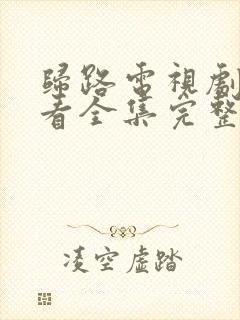 歸路電視劇
看全集完整
凌空虛踏